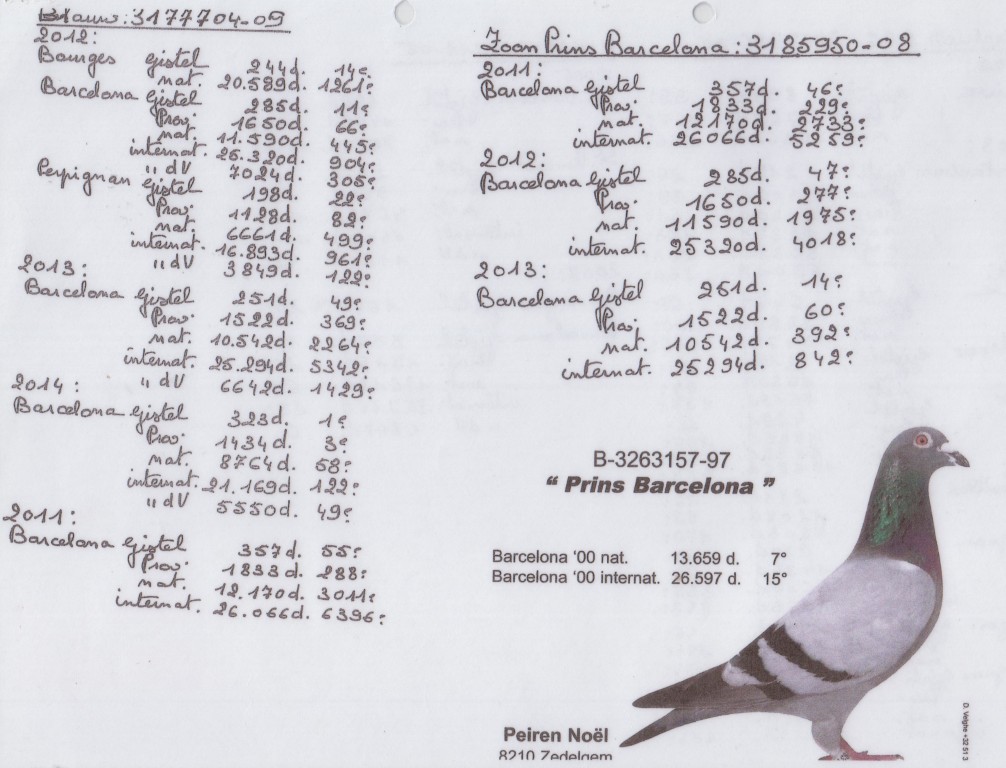 Blauw: 3177704-09
2012:
Bourges Gistel 244d. 14e
nat. 20.589d. 1261e
Barcelona Gistel 285d. 11e
Prov. 1650d. 66e
nat. 11.590d. 445e
internat. 25.320d. 904e
" dV 7024d. 305e
Perpignan Gistel 198d. 22e
Prov. 1128d. 82e
nat. 6661d. 499e
internat. 16.893d. 961e
" dV 3849d. 122e
2013:
Barcelona Gistel 251d. 49e
Prov. 1522d. 369e
nat. 10.542d. 2264e
internat. 25.294d. 5342e
" dV 6642d. 1429e
2014:
Barcelona Gistel 323d. 1e
Prov. 1434d. 3e
nat. 8764d. 58e
internat. 21.169d. 122e
" dV 5550d. 49e
2011:
Barcelona Gistel 357d. 55e
Prov. 1833d. 288e
nat. 12.170d. 3011e
internat. 26.066d. 6396e
Zoon Prins Barcelona: 3185950-08
2011:
Barcelona Gistel 357d. 46e
Prov. 1833d. 229e
nat. 12170d. 2733e
internat. 26066d. 5259e
2012:
Barcelona Gistel 285d. 47e
Prov. 1650d. 277e
nat. 11590d. 1975e
internat. 25320d. 4018e
2013:
Barcelona Gistel 251d. 14e
Prov. 1522d. 60e
nat. 10542d. 392e
internat. 25294d. 842e
B-3263157-97
“ Prins Barcelona ”
Barcelona '00 nat. 13.659 d. 7°
Barcelona '00 internat. 26.597 d. 15°
Peiren Noël
8210 Zedelgem